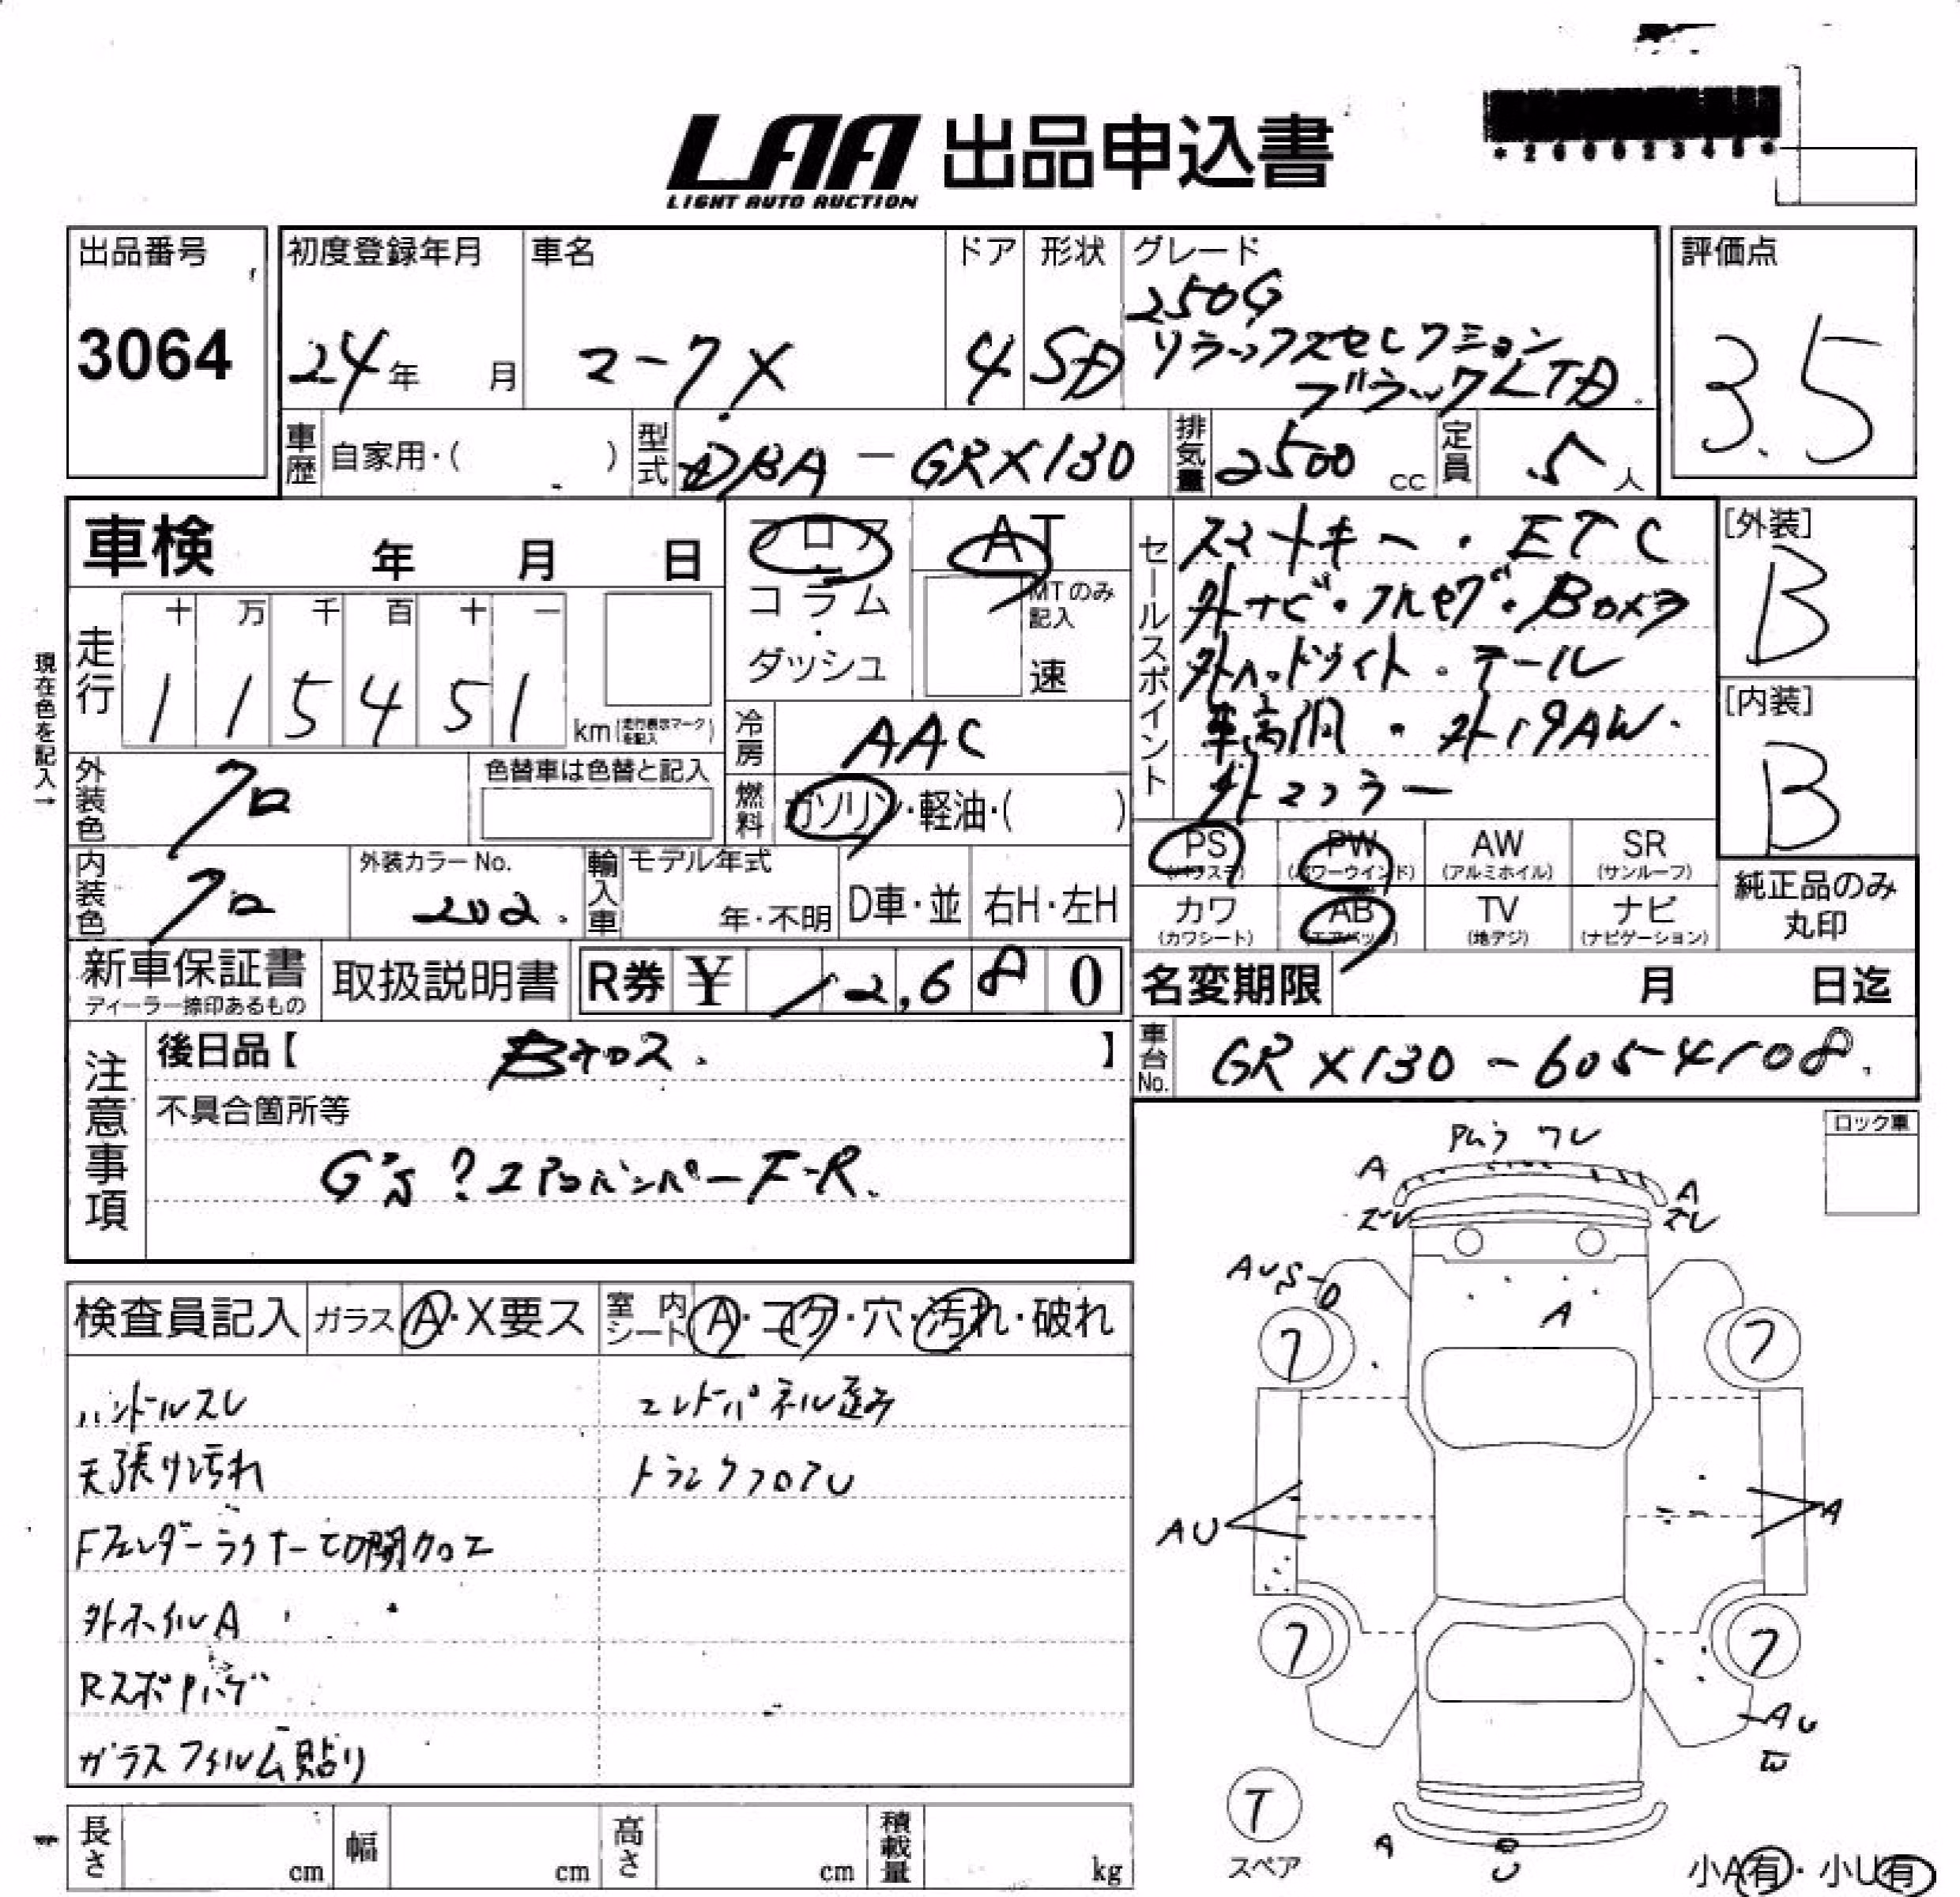 LAA 出品申込書
LIGHT AUTO AUCTION
出品番号
3064
初度登録年月
24年 月
車名
マークX
ドア
4
形状
SD
グレード
250G
リラックスセレクション
ブラックLTD.
評価点
3.5
車歴 自家用・( )
型式 DBA - GRX130
排気量 2500 cc
定員 5人
車検 年 月 日
フロア
コラム
・
ダッシュ
AT
MTのみ
記入
速
現在色を記入→
走行
十 万 千 百 十 一
1 1 5 4 5 1
km (走行表示マークを記入)
冷房 AAC
外装色 クロ
色替車は色替と記入
燃料 ガソリン・軽油・( )
内装色 クロ
外装カラーNo.
202.
輸入車 モデル年式
年・不明
D車・並 右H・左H
セールスポイント
スマートキー・ETC
外ナビ・フルセグ・Boxヲ
外ヘッドライト・テール
車高調・外19AW・
外マフラー
[外装]
B
[内装]
B
PS (パワステ)
PW (パワーウインド)
AW (アルミホイル)
SR (サンルーフ)
カワ (カワシート)
AB (エアバッグ)
TV (地デジ)
ナビ (ナビゲーション)
純正品のみ
丸印
新車保証書
ディーラー捺印あるもの
取扱説明書
R券 ¥ 12,680
名変期限 月 日迄
車台No. GRX130-6054108.
注意事項
後日品【 】
不具合箇所等
G's ? エアロバンパーF-R.
ロック車
ワレ
A
A
スレ
スレ
A
7
7
AU
A
7
7
AU
T
スペア
A
U
小A有・小U有
検査員記入 ガラス A・X要ス
室内シート A・コゲ・穴・汚れ・破れ
ハンドルスレ
エンドパネル歪み
天張り汚れ
トランクフロアU
Fフェンダーライナー切開カロエ
外ホイルA
Rスポハゲ
ガラスフィルム貼り
長さ cm
幅 cm
高さ cm
積載量 kg